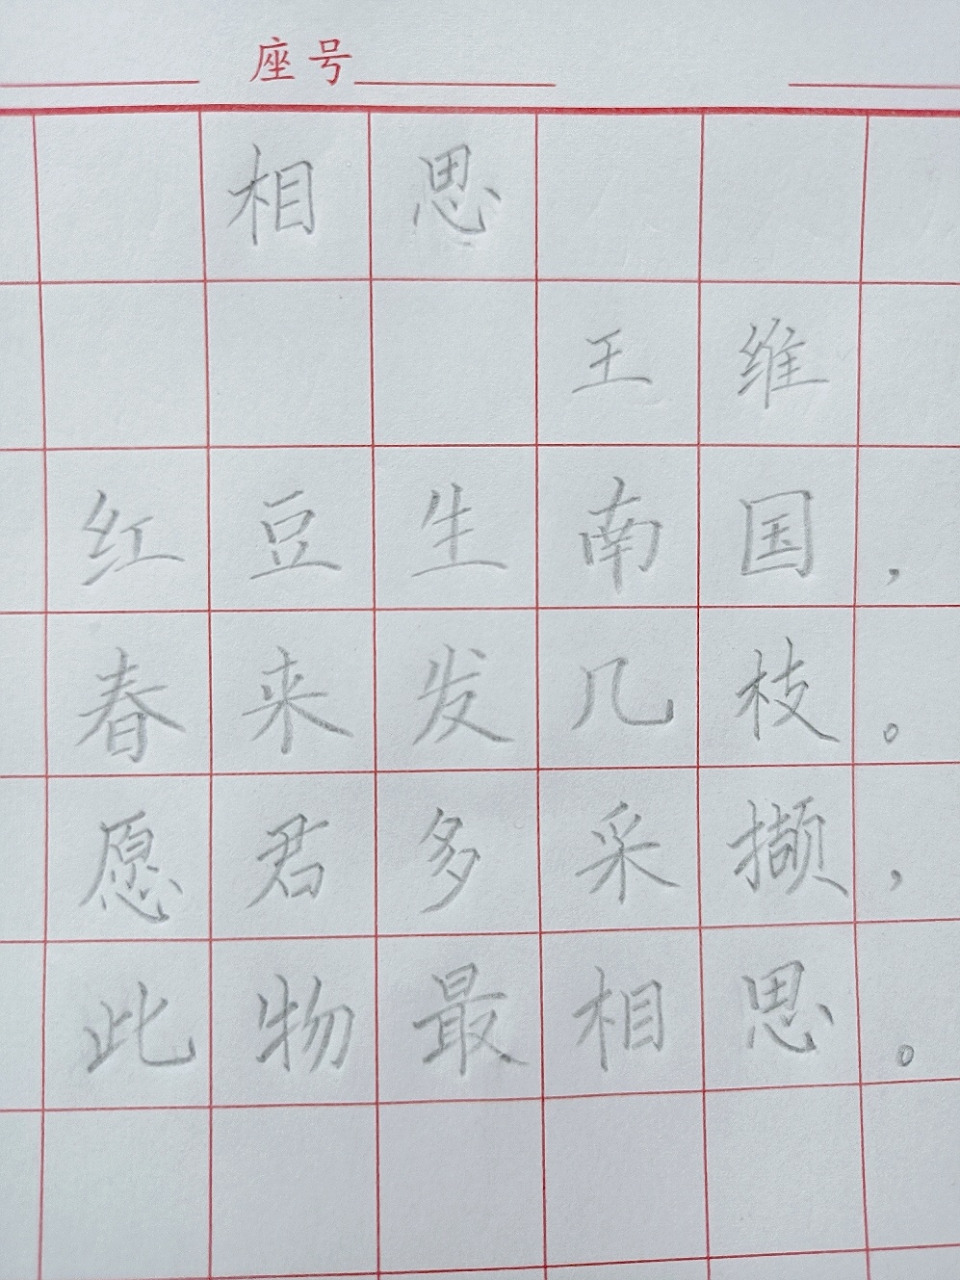 座号
相思
王维
红豆生南国，
春来发几枝。
愿君多采撷，
此物最相思。